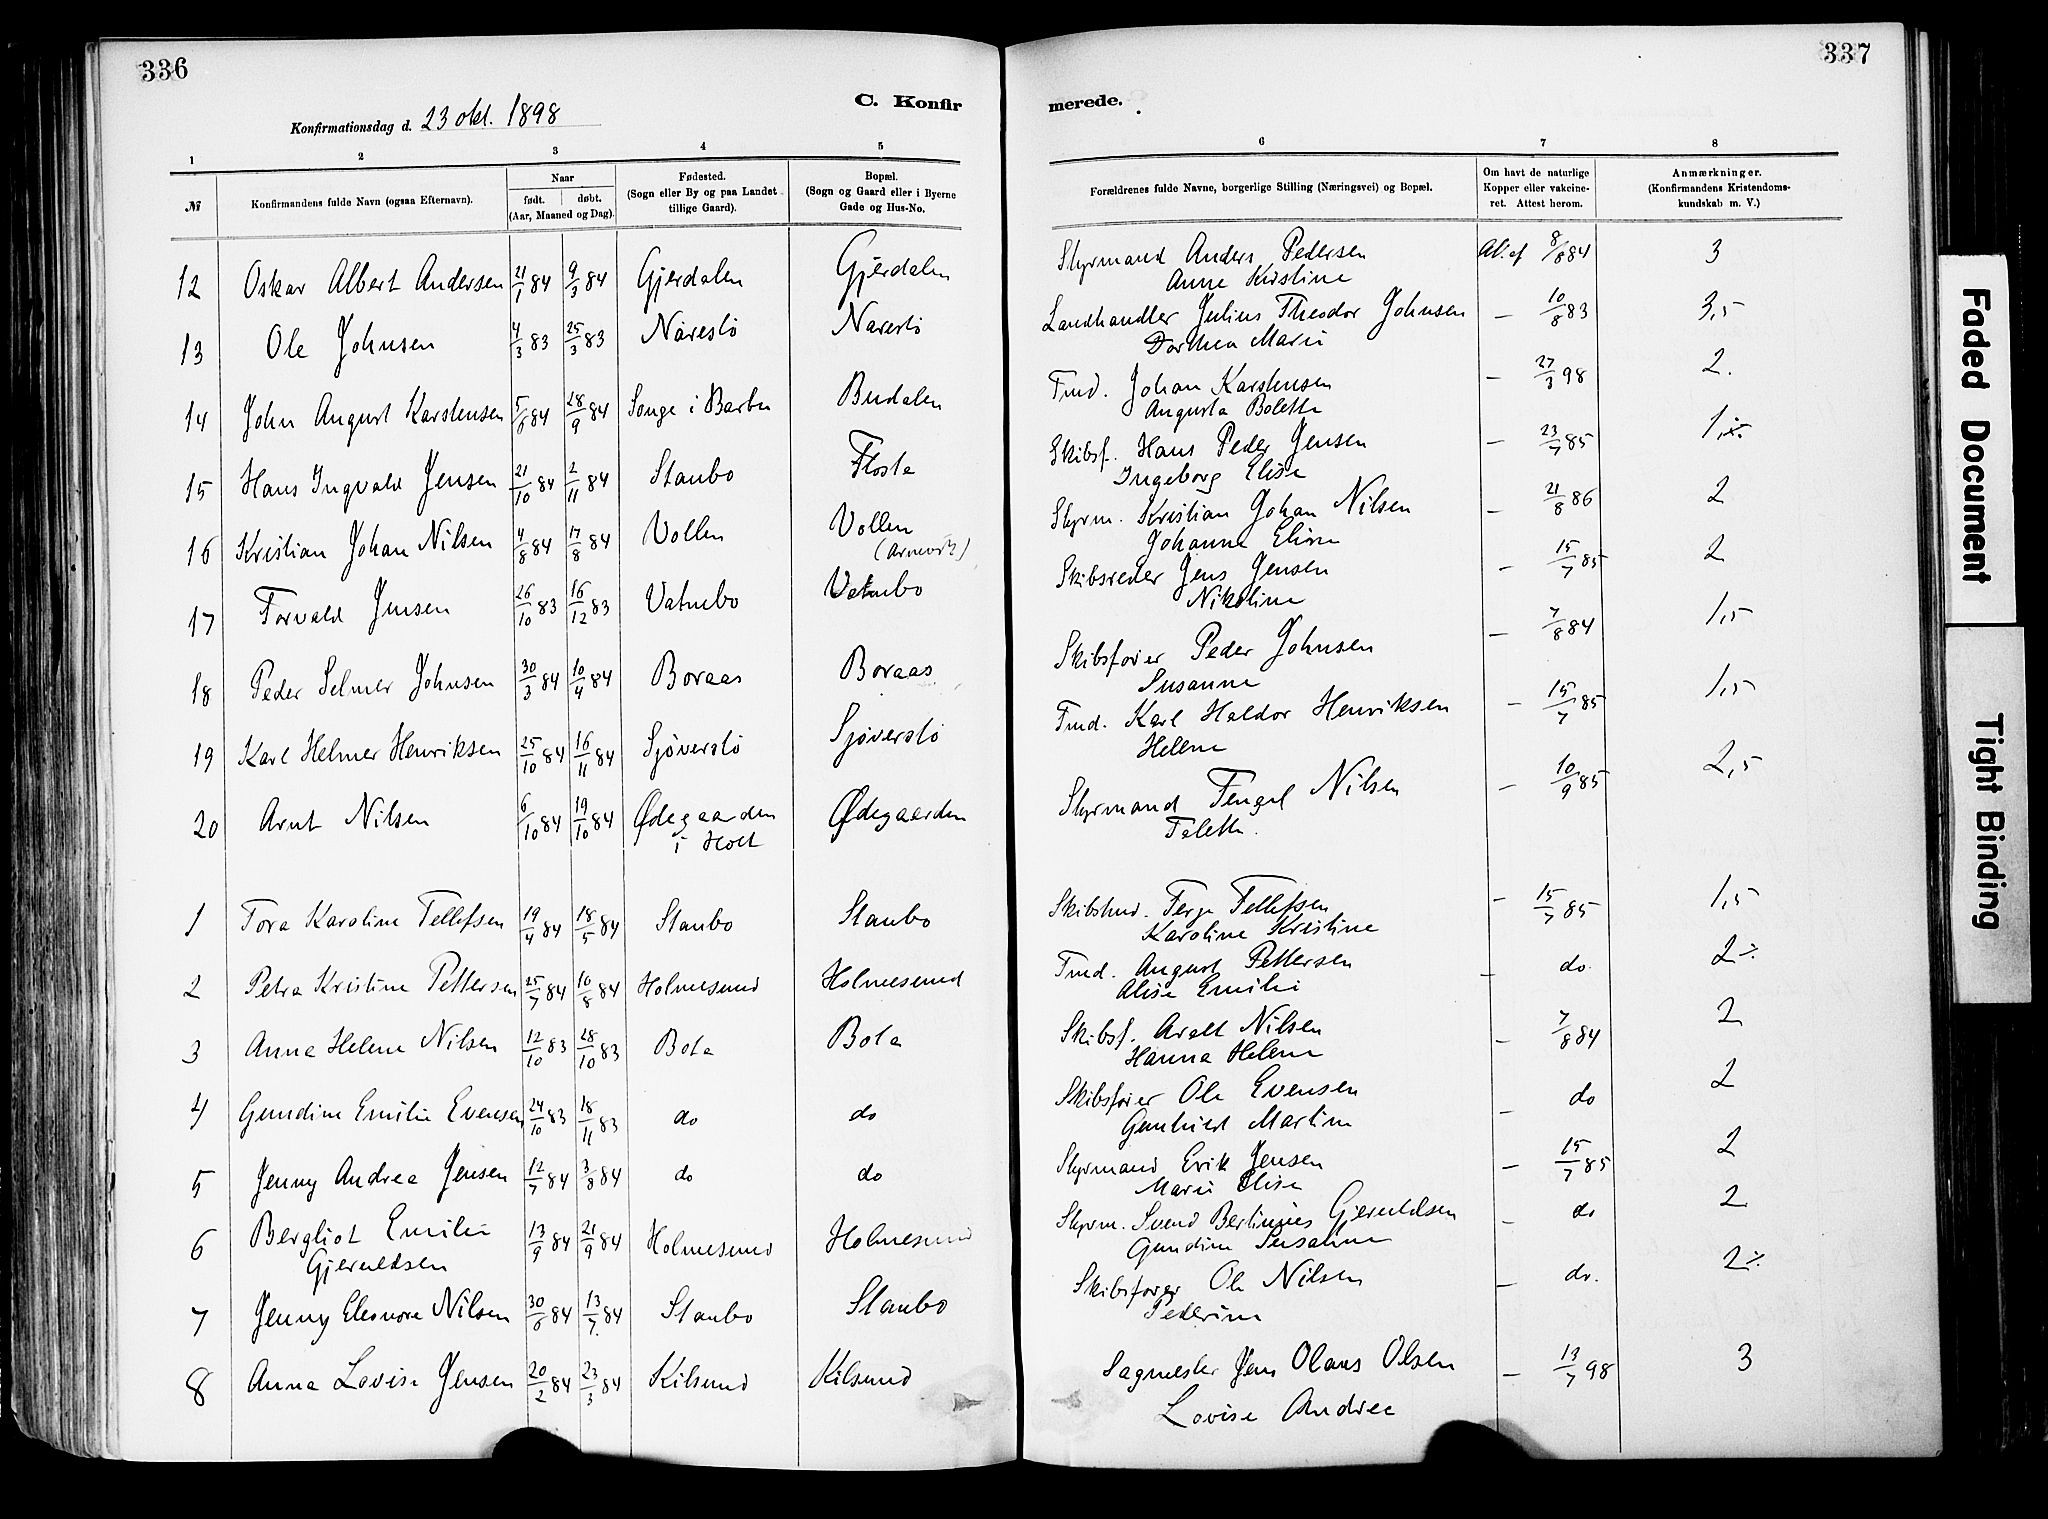 336
337
C. Konfir
merede.
Konfirmationsdag d. 23 okt. 1898
1 2 3 4 5 6 7 8
№ Konfirmandens fulde Navn (ogsaa Efternavn). Naar født. døbt. (Aar, Maaned og Dag). Fødested. (Sogn eller By og paa Landet tillige Gaard). Bopæl. (Sogn og Gaard eller i Byerne Gade og Hus-No. Forældrenes fulde Navne, borgerlige Stilling (Næringsvei) og Bopæl. Om havt de naturlige Kopper eller vakcineret. Attest herom. Anmærkninger. (Konfirmandens Kristendomskundskab m. V.)
12 Oskar Albert Andersen 21/1 84 9/3 84 Gjerdalen Gjerdalen Styrmand Anders Pedersen At. af 8/8 84 3
Anne Kirstine
13 Ole Johnsen 4/3 83 25/3 83 Narestö Narestö Landhandler Julius Theodor Johnsen – 10/8 83 3,5
Dorthea Marie
14 John August Karstensen 5/8 84 28/9 84 Songe i Barbu Budalen Tmd. Johan Karstensen – 27/3 98 2.
Augusta Bolette
15 Hans Ingvald Jensen 21/10 84 2/11 84 Staubo Flosta Skibsf. Hans Peder Jensen – 23/7 85
Ingeborg Elise
16 Kristian Johan Nilsen 4/8 84 17/8 84 Vollen Vollen Styrm. Kristian Johan Nilsen – 21/8 86 2
Johanne Elise
17 Torvald Jensen 26/10 83 16/12 83 Vatnebo Vatnebo Skibsreder Jens Jensen – 15/7 85 2
Nikoline
18 Peder Selmer Johnsen 30/3 84 10/4 84 Boraas Boraas Skibsfører Peder Johnsen – 7/8 84 1,5
Susanne
19 Karl Helmer Henriksen 25/10 84 16/11 84 Sjöverstö Sjöverstö Tmd. Karl Haldor Henriksen – 15/7 85 1,5
Helene
20 Arnt Nilsen 6/10 84 19/10 84 Ødegaarden Ødegaarden Styrmand Tengel Nilsen – 10/9 85 2,5
i Holt Talette.
1 Tora Karoline Tellefsen 19/4 84 18/5 84 Staubo Staubo Skibstmd. Terje Tellefsen – 15/7 85 1,5
Karoline Kristine
2 Petra Kristine Pettersen 25/7 84 10/8 84 Holmesund Holmesund Tmd. August Pettersen – do. 2÷
Alise Emilie
3 Anna Helene Nilsen 12/10 83 28/10 83 Bota Bota Skibsf. Aralt Nilsen – 7/8 84 2
Hanna Helene
4 Gundine Emilie Evensen 24/10 83 18/11 83 do do Skibsfører Ole Evensen – do 2
Gunhild Martine
5 Jenny Andrea Jensen 12/7 84 3/8 84 do do Styrmand Erik Jensen – 15/7 85 2
Marie Elise
6 Bergliot Emilie 13/9 84 21/9 84 Holmesund Holmesund Styrm. Svend Bertinius Gjeruldsen – do 2
Gjeruldsen Gundine Susanne
7 Jenny Eleonore Nilsen 30/6 84 13/7 84 Staubo Staubo Skibsfører Ole Nilsen – do. 2÷
Pederine
8 Anna Lovise Jensen 20/2 84 23/3 84 Kilsund Kilsund Sagmester Jens Olaus Olsen – 13/7 98 3
Lovise Andrea
Faded Document
Tight Binding